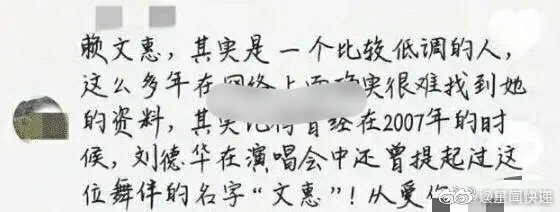 赖文惠，其实是一个比较低调的人，
这么多年在网络上面确实很难找到她
的资料，其实记得曾经在2007年的时
候，刘德华在演唱会中还曾提起过这
位舞伴的名字“文惠”！从爱你
@星闻快递